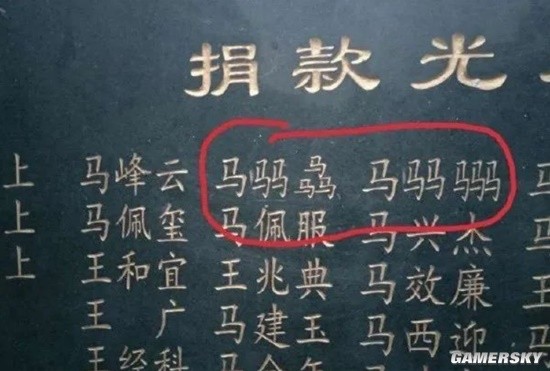 捐款光
上 马峰云 马骉 马
上 马佩玺 马佩服 马兴杰
上 王和宜 王兆典 马效廉
王广 马建玉 马西迎
王经科
GAMERSKY